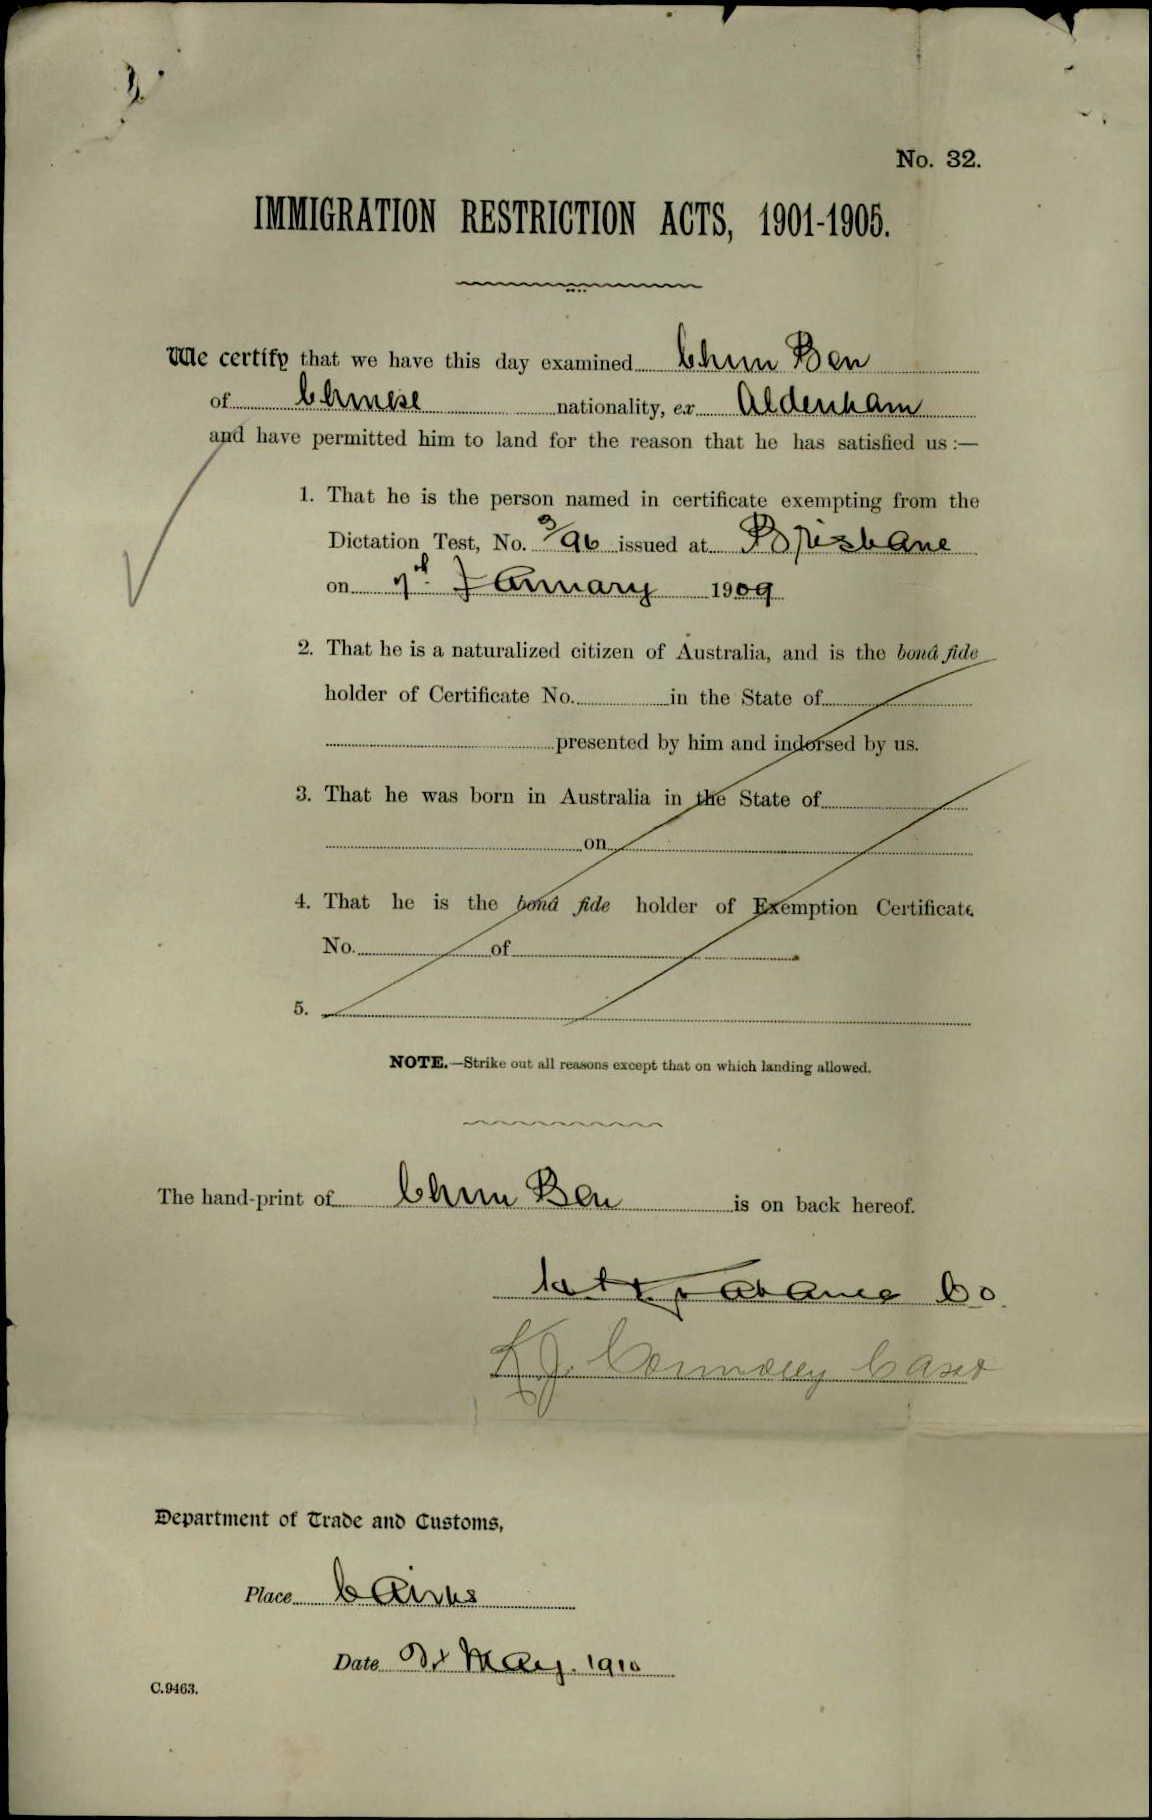 No. 32.
IMMIGRATION RESTRICTION ACTS, 1901-1905.
We certify that we have this day examined Chun Ben
of Chinese nationality, ex Aldenham
and have permitted him to land for the reason that he has satisfied us :—
1. That he is the person named in certificate exempting from the
Dictation Test, No. 3/96 issued at Brisbane
on 7th January 1909
2. That he is a naturalized citizen of Australia, and is the bonâ fide
holder of Certificate No. in the State of
presented by him and indorsed by us.
3. That he was born in Australia in the State of
on
4. That he is the bonâ fide holder of Exemption Certificate
No. of
5.
NOTE.—Strike out all reasons except that on which landing allowed.
The hand-print of Chun Ben is on back hereof.
Co.
K. J. Connolly
Department of Trade and Customs,
Place Cairns
Date May. 1910
C.9463.